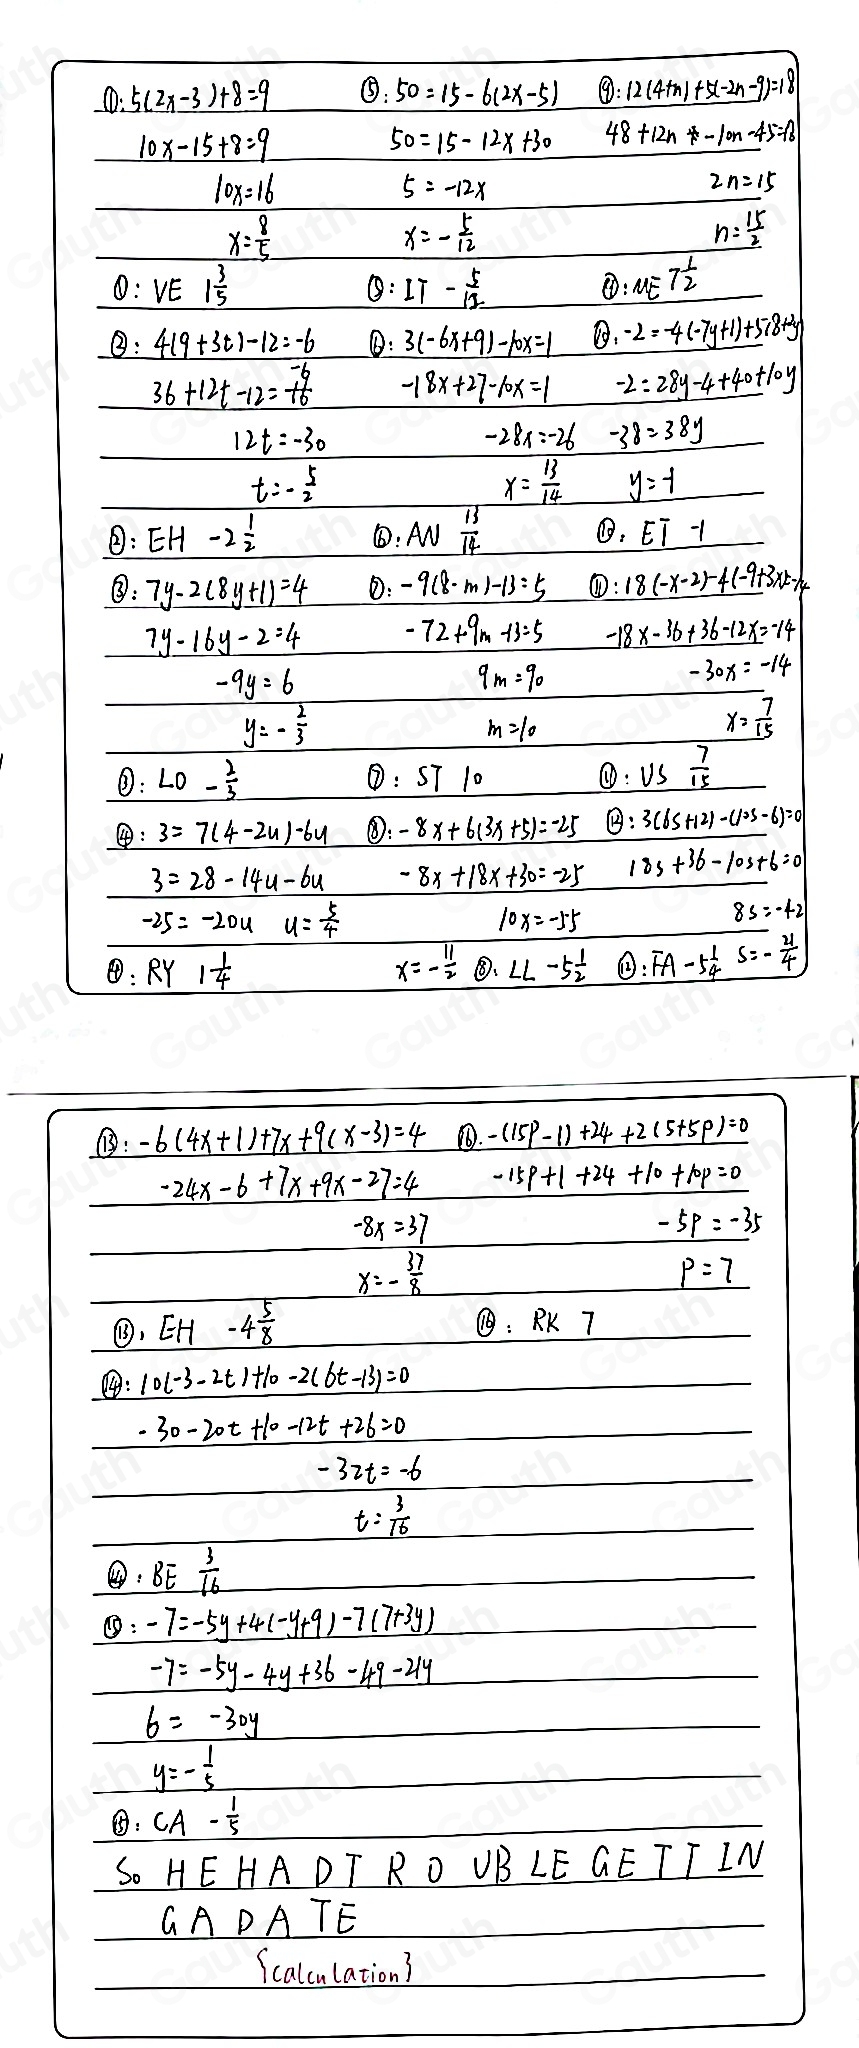 ①: 5(2x-3)+8=9
10x-15+8=9
10x=16
x=8/5
①: VE 1 3/5
②: 4(9+3t)-12=-6
36+12t-12=-6
12t=-30
t=-5/2
②: EH -2 1/2
③: 7y-2(8y+1)=4
7y-16y-2=4
-9y=6
y=-2/3
③: LO -2/3
④: 3=7(4-2u)-6u
3=28-14u-6u
-25=-20u u=5/4
④: RY 1 1/4
⑤: 50=15-6(2x-5)
50=15-12x+30
5=-12x
x=-5/12
⑤: IT -5/12
⑥: 3(-6x+9)-10x=1
-18x+27-10x=1
-28x=-26
x=13/14
⑥: AN 13/14
⑦: -9(8-m)-13=5
-72+9m-13=5
9m=90
m=10
⑦: ST 10
⑧: -8x+6(3x+5)=-25
-8x+18x+30=-25
10x=-55
x=-11/2 ⑧: LL -5 1/2
⑨: 12(4+n)+5(-2n-9)=18
48+12n-10n-45=18
2n=15
n=15/2
⑨: ME 7 1/2
⑩: -2=-4(-7y+1)+5(8+2y)
-2=28y-4+40+10y
-38=38y
y=-1
⑩: ET -1
⑪: 18(-x-2)-4(-9+3x)=-14
-18x-36+36-12x=-14
-30x=-14
x=7/15
⑪: US 7/15
⑫: 3(6s+12)-(10s-6)=0
18s+36-10s+6=0
8s=-42
⑫: FA -5 1/4 s=-21/4
⑬: -6(4x+1)+7x+9(x-3)=4
-24x-6+7x+9x-27=4
-8x=37
x=-37/8
⑬: EH -4 5/8
⑯: -(15p-1)+24+2(5+5p)=0
-15p+1+24+10+10p=0
-5p=-35
p=7
⑯: RK 7
⑭: 10(-3-2t)+10-2(6t-13)=0
-30-20t+10-12t+26=0
-32t=-6
t=3/16
⑭: BE 3/16
⑮: -7=-5y+4(-y+9)-7(7+3y)
-7=-5y-4y+36-49-21y
6=-30y
y=-1/5
⑮: CA -1/5
So HEHADTROUBLEGETTIN
GADATE
{calculation}